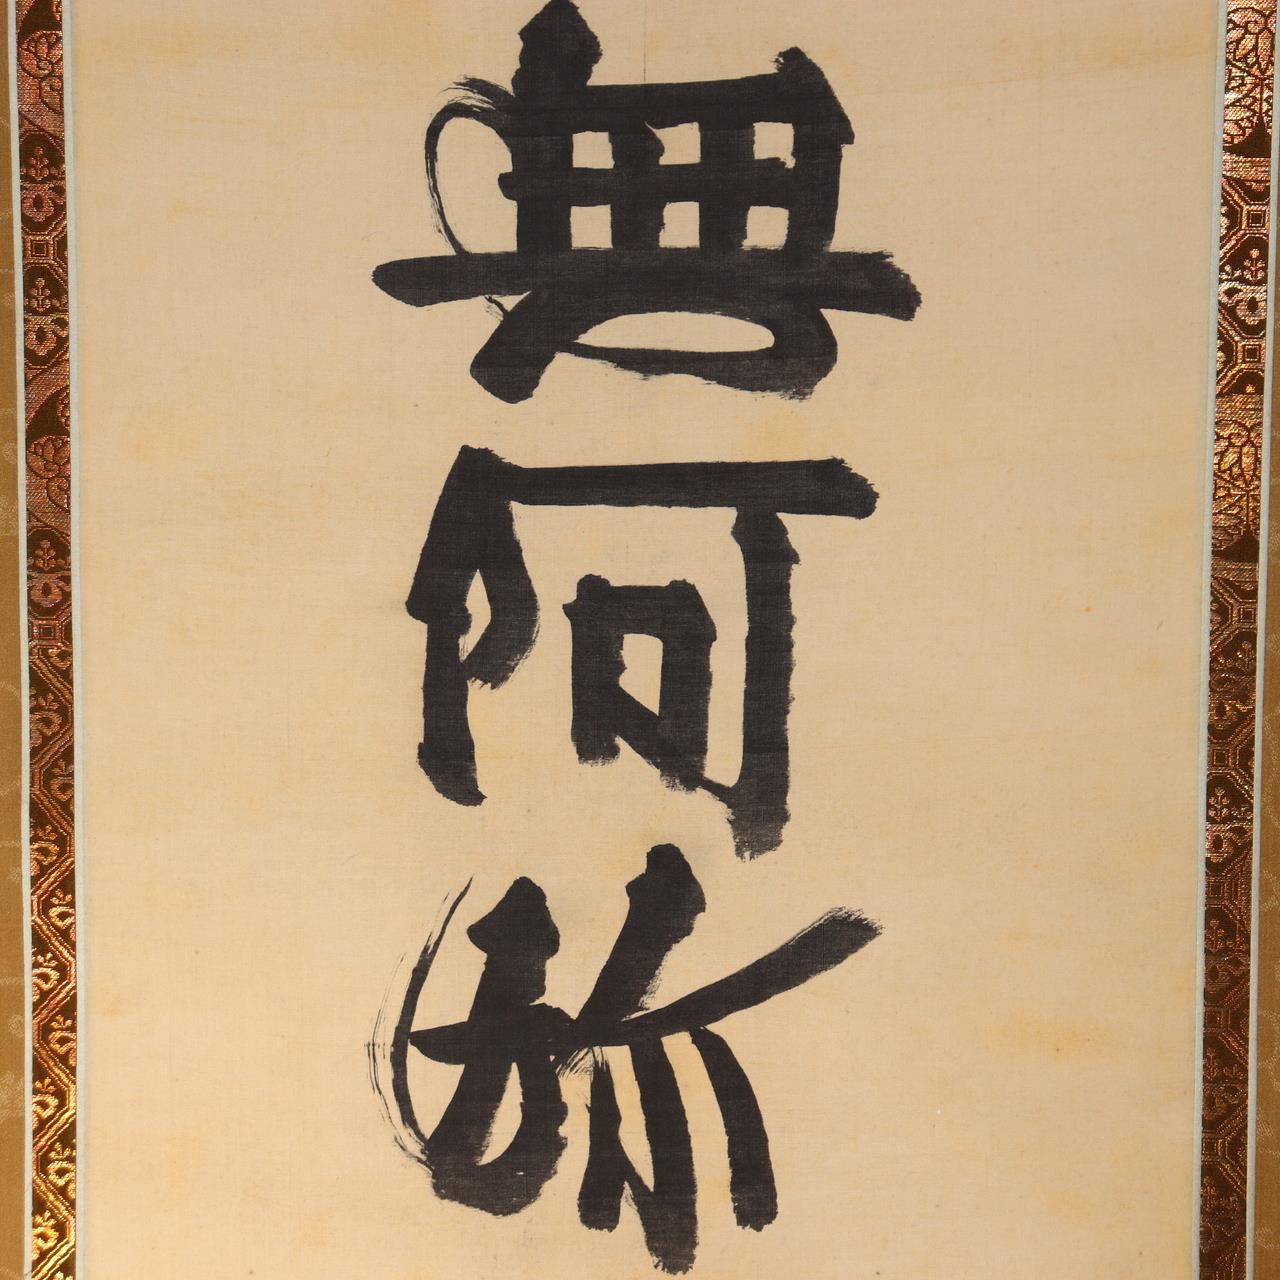 無阿弥